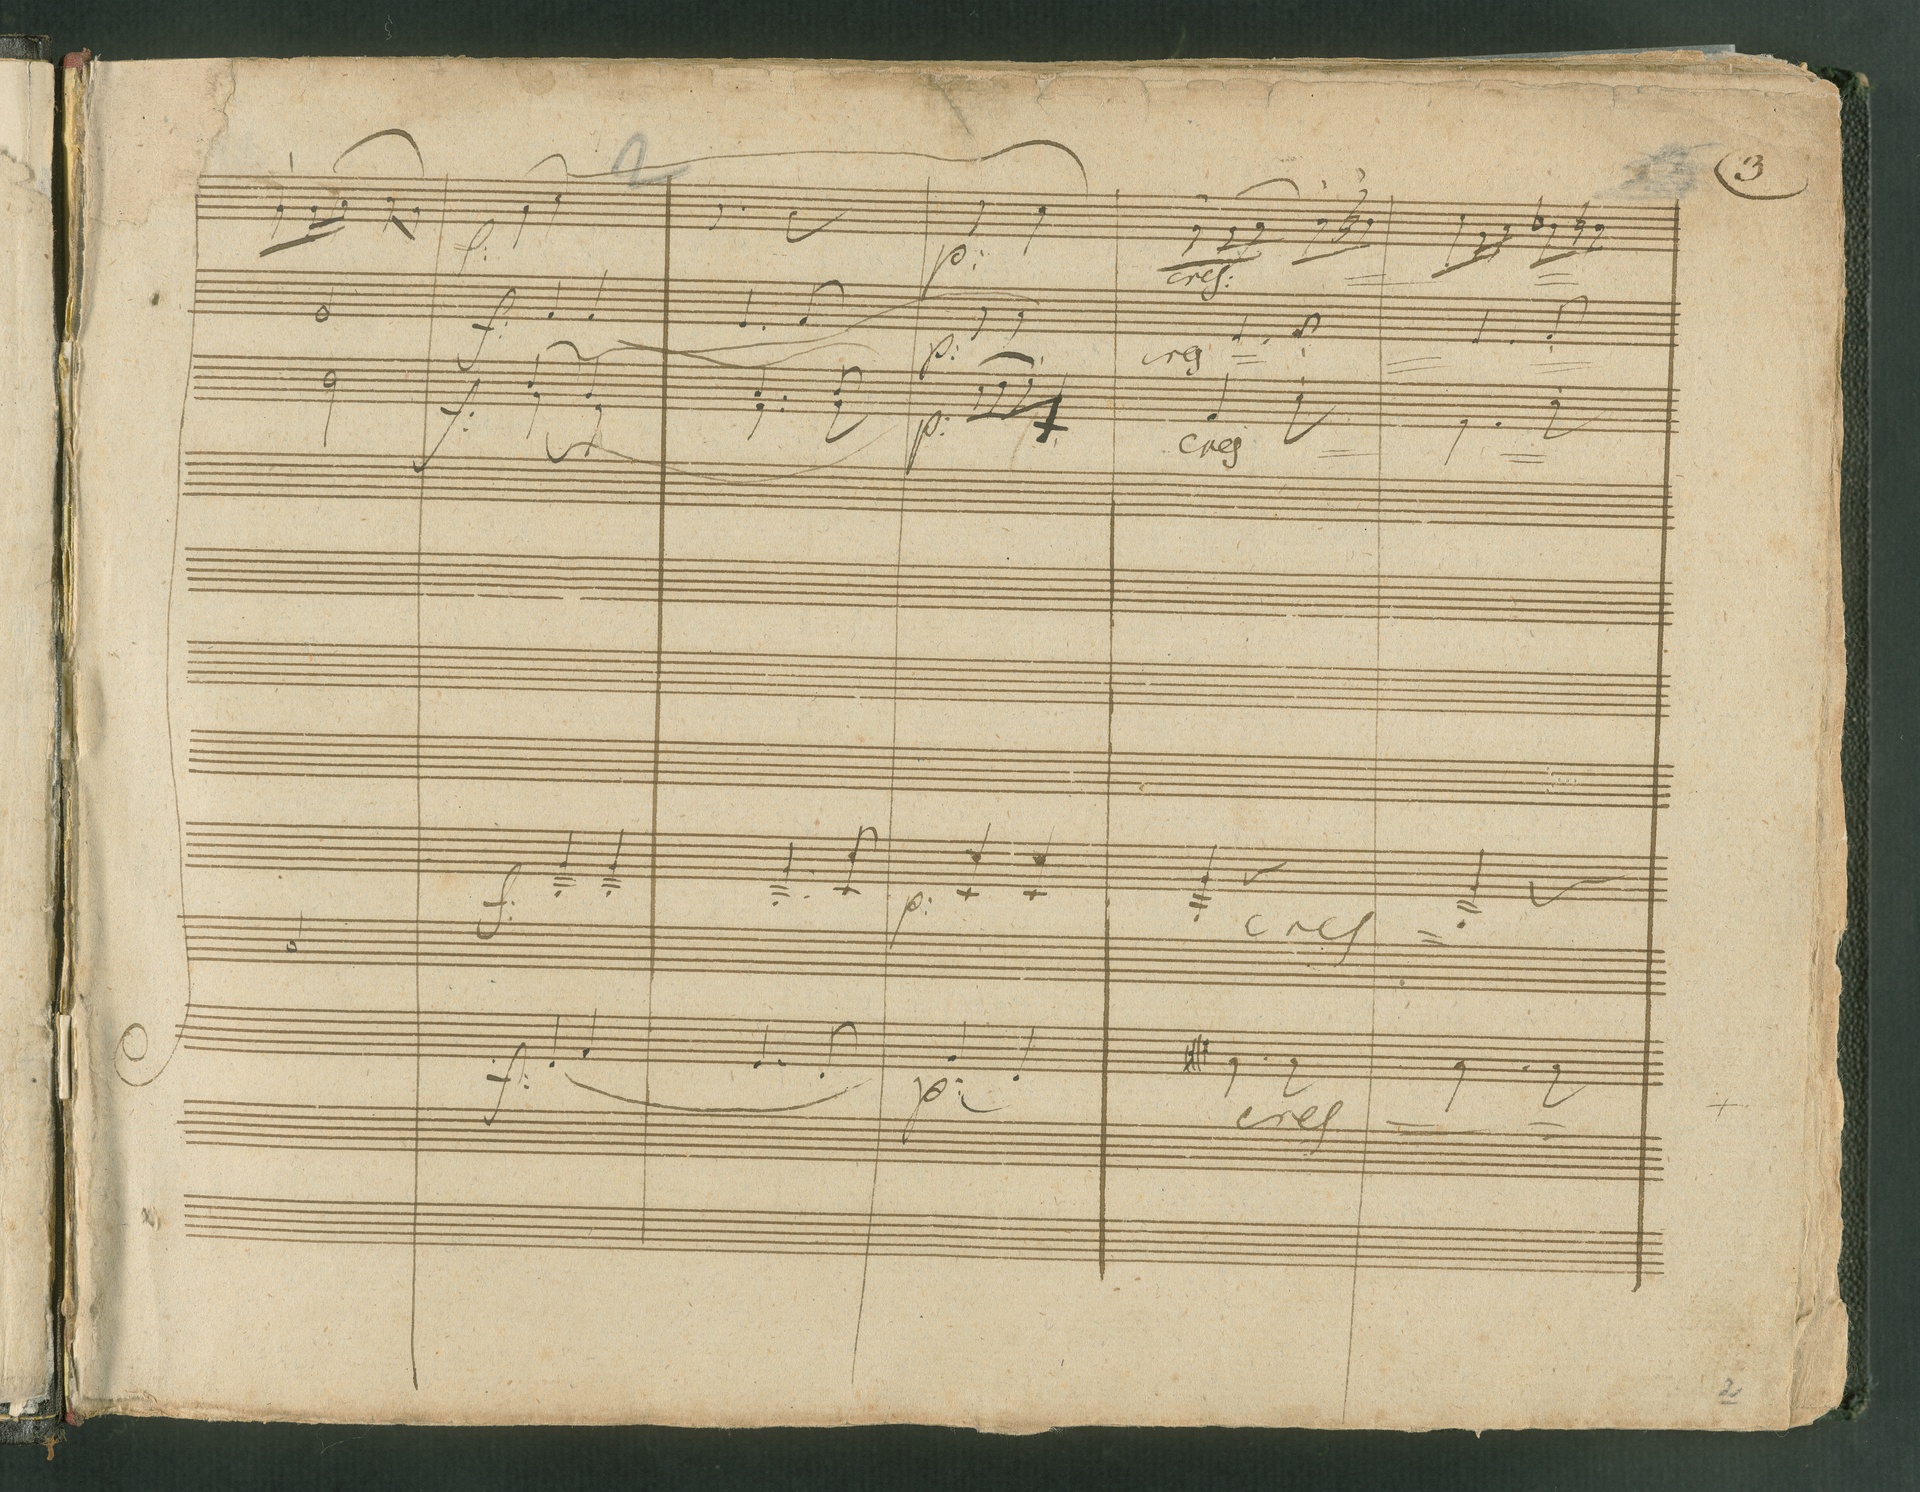 3
f: p: cres:
f: p: cres
f: p: cres
f: p: cres
f: p: cres
2